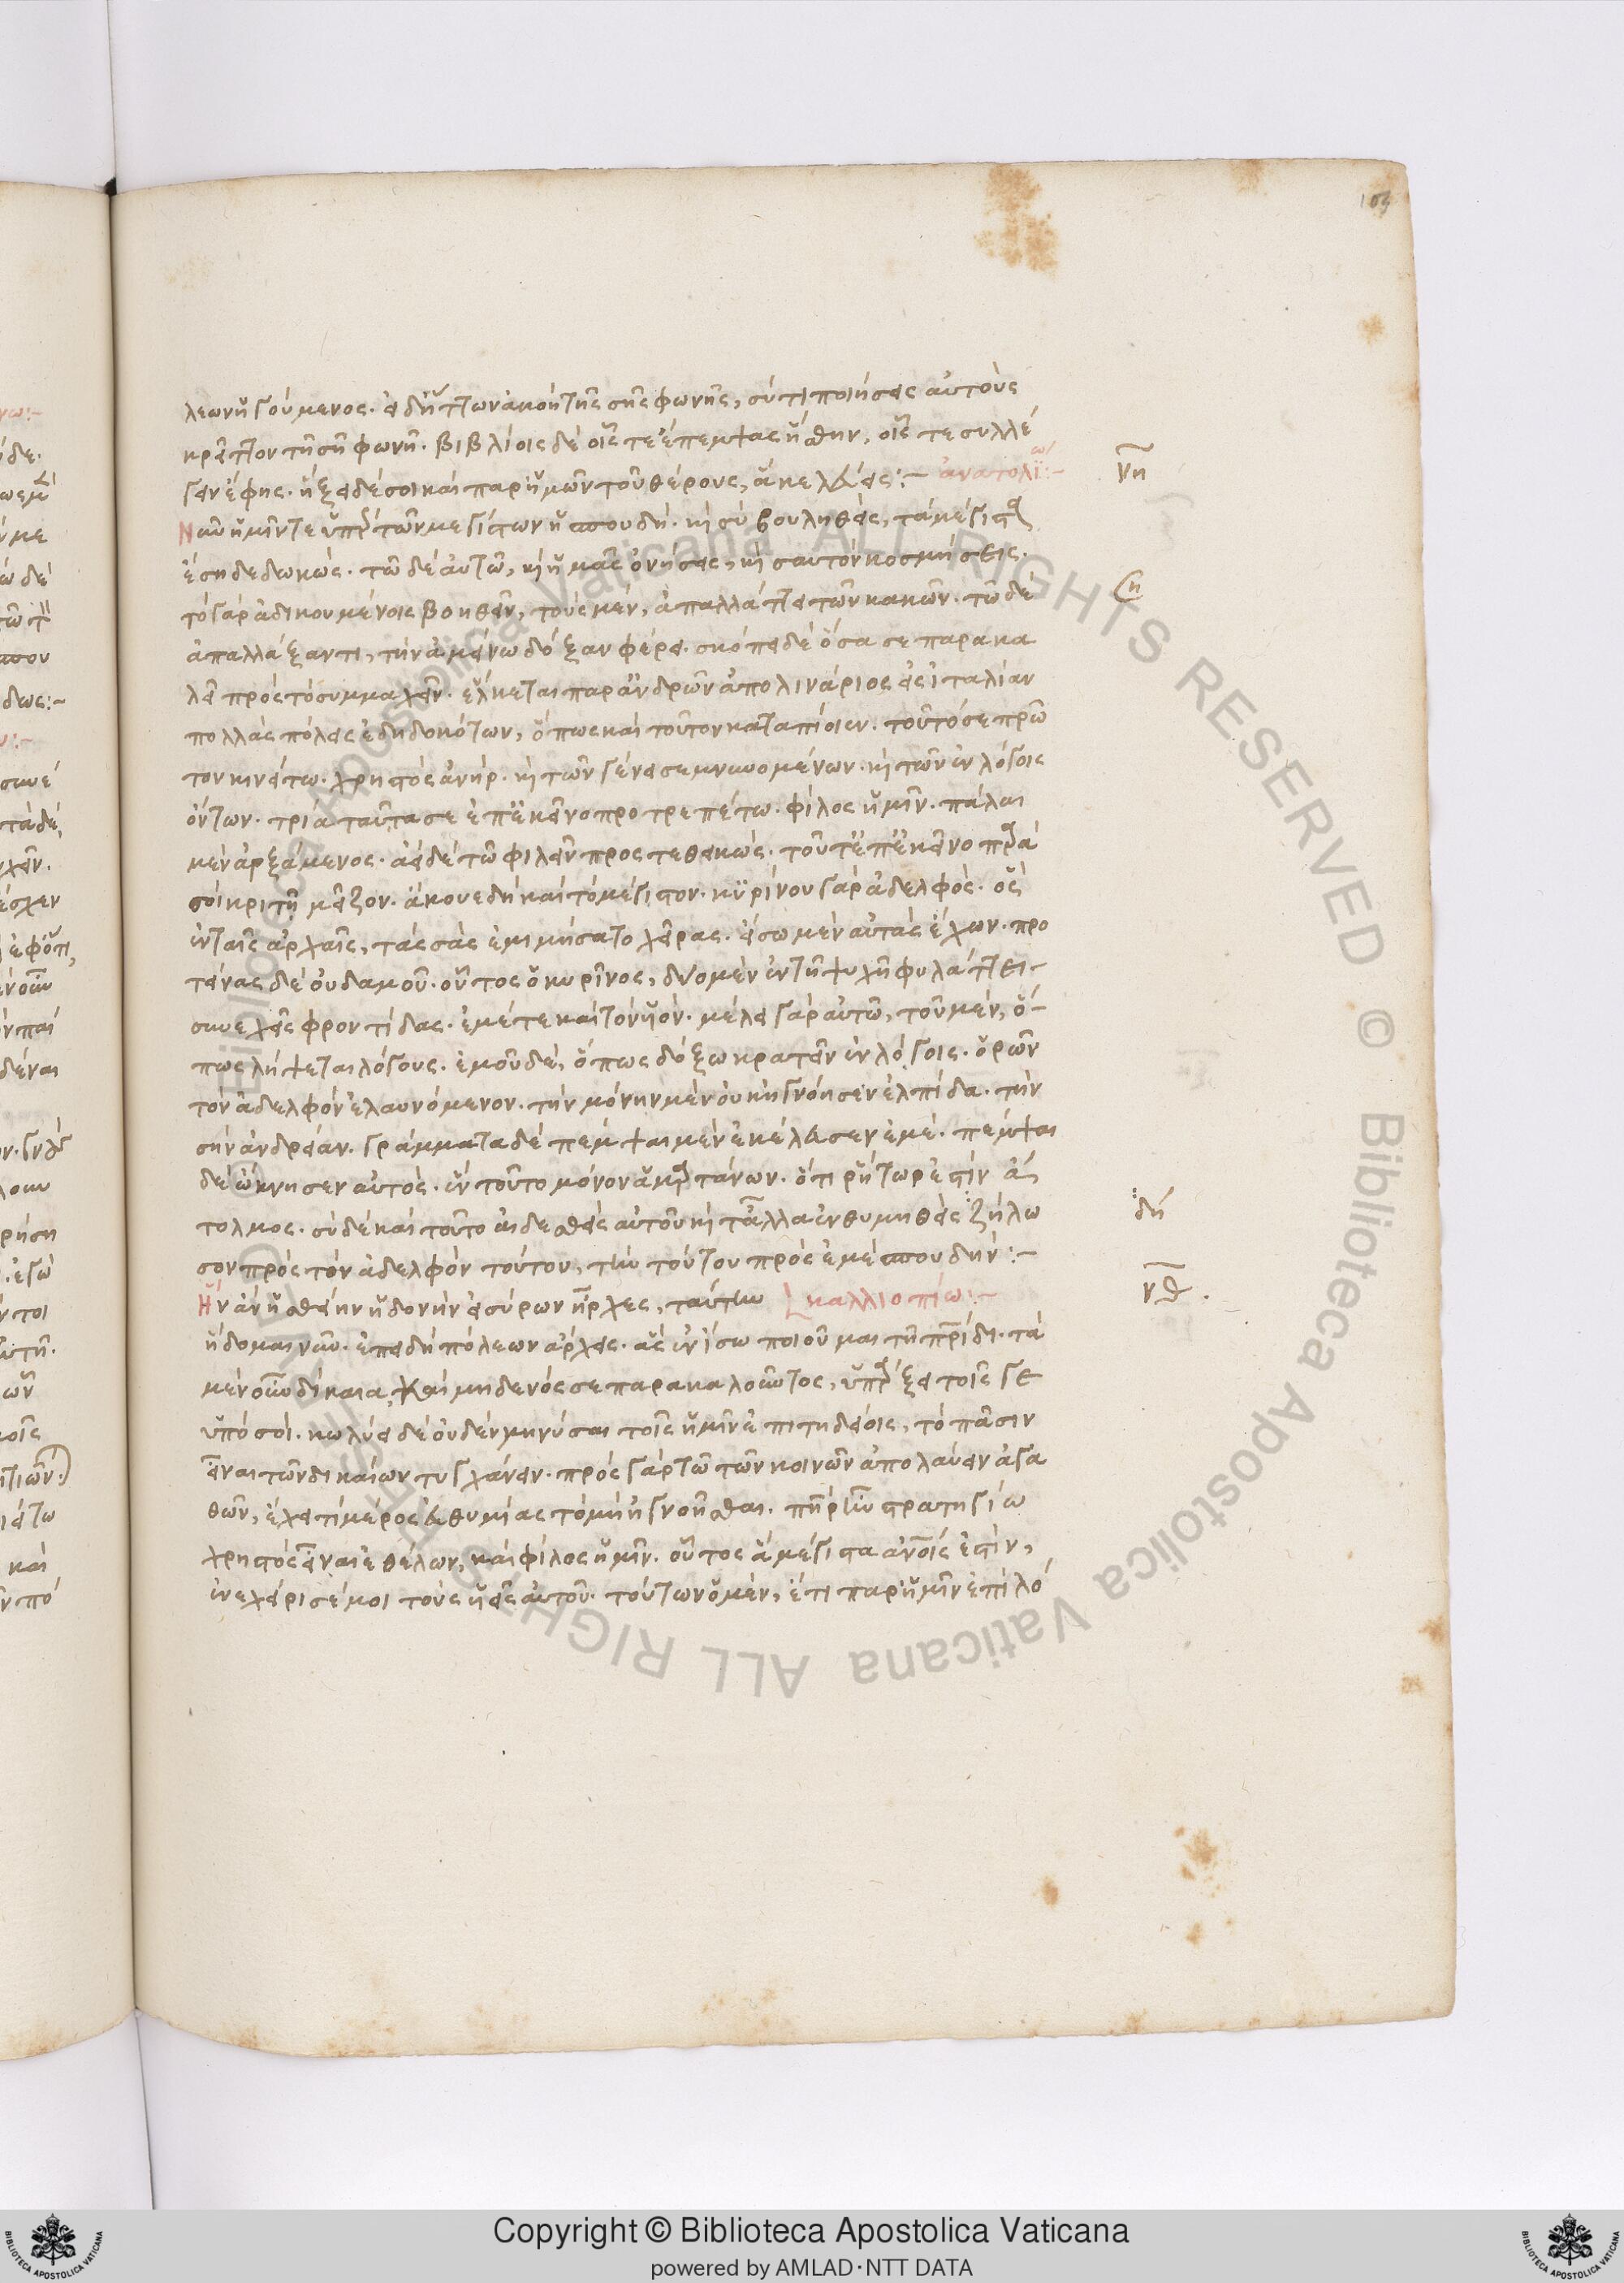 109
λεων ἡγούμενος. εἰ δ' ἥττων ἀκοὴ τῆς σῆς φωνῆς, σύ τι ποιήσεις αὐτοὺς
κρεῖττον τῆ σῆ φωνῆ. βιβλίοις δὲ οἷς τε ἔπεμψας ἥσθην, οἷς τε συλλέ
γειν ἔφης. ἥξει δέ σοι καὶ παρ' ἡμῶν τοῦ θέρους, ἃ κελεύεις:– ἀνατολίω:–
νη
Νῦν ἡμῖν τε ὑπὲρ τῶν μεγίστων ἡ σπουδὴ. κὶ σὺ βουληθεὶς, τὰ μέγιστα
ἔση δεδωκώς. τῶ δὲ αὐτῶ, κὶ ἡμᾶς ὀνήσεις, κὶ σαυτὸν κοσμήσεις.
τὸ γὰρ ἀδικουμένοις βοηθεῖν, τοὺς μὲν, ἀπαλλάττει τῶν κακῶν. τῶ δὲ
ἀπαλλάξαντι, τὴν ἀμείνω δόξαν φέρει. σκόπει δὲ ὅσα σε παρακα
λεῖ πρὸς τὸ συμμαχεῖν. ἕλκεται παρ' ἀνδρῶν ἀπολινάριος εἰς ἰταλίαν
πολλὰς πόλεις ἐδηδοκότων, ὅπως καὶ τοῦτον καταπίοιεν. τοῦτό σε πρῶ
τον κινείτω. χρηστὸς ἀνήρ. κὶ τῶν γένει σεμνυνομένων. κὶ τῶν ἐν λόγοις
ὄντων. τρία ταῦτα σε ἐπ' ἐκεῖνο προτρεπέτω. φίλος ἡμῖν. πάλαι
μὲν ἀρξάμενος. ἀεὶ δὲ τῶ φιλεῖν προστεθεικώς. τοῦτ' ἐπ' ἐκεῖνο παρὰ
σοὶ κριτῆ μεῖζον. ἄκουε δὴ καὶ τὸ μέγιστον. κυρίνου γὰρ ἀδελφός. ὃς
ἐν ταῖς ἀρχαῖς, τὰς σὰς ἐμιμήσατο χεῖρας. εἴσω μὲν αὐτὰς ἔχων. προ
τείνας δὲ οὐδαμοῦ. οὗτος ὁ κυρῖνος, δύο μὲν ἐν τῆ ψυχῆ φυλάττει
συνεχεῖς φροντίδας. ἐμέ τε καὶ τὸν υἱόν. μέλει γὰρ αὐτῶ, τοῦ μὲν, ὅ–
πως λήψεται λόγους. ἐμοῦ δὲ, ὅπως δόξω κρατεῖν ἐν λόγοις. ὁρῶν
τὸν ἀδελφὸν ἐλαυνόμενον. τὴν μόνην μὲν οὐκ ἠγνόησεν ἐλπίδα. τὴν
σὴν ἀνδρείαν. γράμματα δὲ πέμψαι μὲν ἐκέλευσεν ἐμέ. πέμψαι
δὲ ὤκνησεν αὐτός. ἓν τοῦτο μόνον ἁμαρτάνων. ὅτι ῥήτωρ ἐστὶν ἄ–
τολμος. σὺ δὲ καὶ τοῦτο αἰδεσθεὶς αὐτοῦ κὶ τἆλλα ἐνθυμηθεὶς ζήλω
δή
σον πρὸς τὸν ἀδελφὸν τοῦτον, τὴν τούτου πρὸς ἐμὲ σπουδήν:–
Ἣν ἂν ἥσθην ἡδονὴν εἰ σύρων ἦρχες, ταύτην καλλιοπίω:–
νθ.
ἥδομαι νῦν. ἐπειδὴ πόλεων ἄρχεις. ἃς ἐν ἴσω ποιοῦμαι τῆ πατρίδι. τὰ
μὲν οὖν δίκαια, καὶ μηδενός σε παρακαλοῦντος, ὑπάρξει τοῖς γε
ὑπὸ σοί. κωλύει δὲ οὐδὲν μηνύσαι τοῖς ἡμῖν ἐπιτηδείοις, τὸ πᾶσιν
εἶναι τῶν δικαίων τυγχάνειν. πρὸς γὰρ τῶ τῶν κοινῶν ἀπολαύειν ἀγα
θῶν, ἔχει τι μέρος εὐθυμίας τὸ μὴ ἠγνοῆσθαι. πῆρ ἐν στρατηγίω
χρηστὸς εἶναι ἐθέλων, καὶ φίλος ἡμῖν. οὗτος ἃ μέγιστα ἀνοις ἐστὶν,
ἐνεχείρισέ μοι τοὺς υἱεῖς αὐτοῦ. τούτων ὁ μὲν, ἔτι παρ' ἡμῖν ἐπὶ λό
Copyright © Biblioteca Apostolica Vaticana
powered by AMLAD·NTT DATA